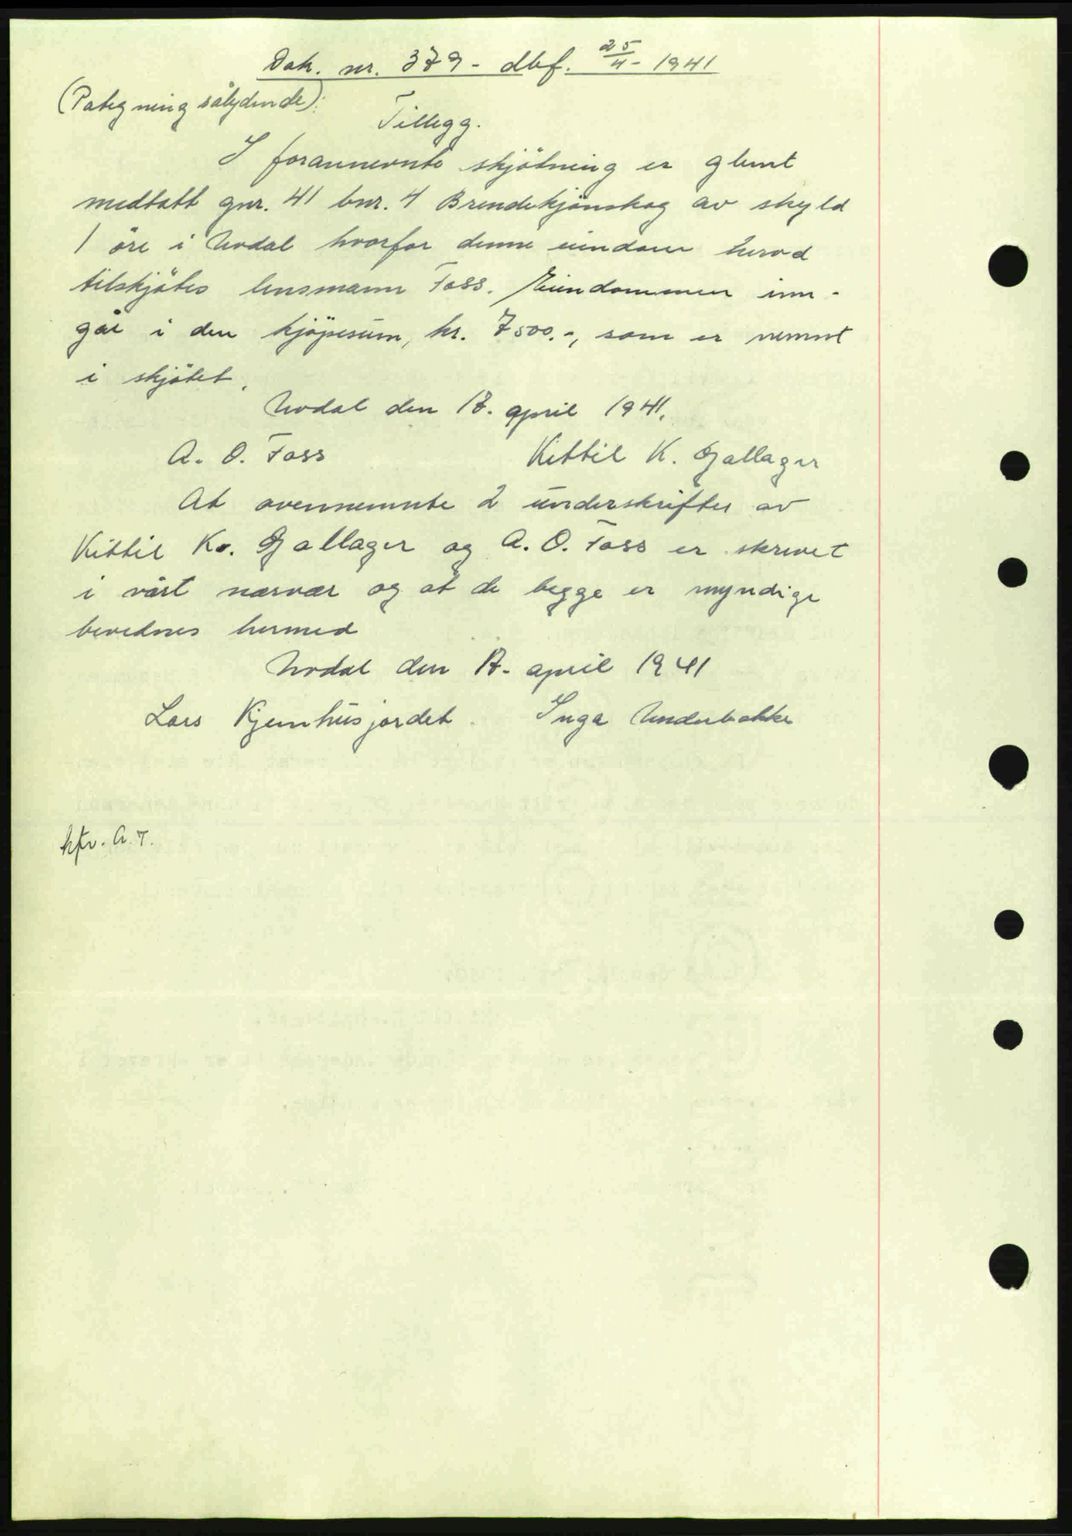 Dok. nr. 379 - dbf. 25/4 - 1941
(Påtegning sålydende):
Tillegg.
I forannevnte skjötning er glemt
medtatt gnr. 41 bnr. 4 Brendekjönskog av skyld
1 öre i Uvdal hvorfor denne eiendom herved
tilskjötes lensmann Foss. Eiendommen inn-
går i den kjöpesum, kr. 7500.-, som er nevnt
i skjötet.
Uvdal den 17. april 1941.
A. O. Foss Kittil K. Gallager
At ovennevnte 2 underskrifter av
Kittil K. Gallager og A. O. Foss er skrevet
i vårt nærvær og at de begge er myndige
bevidnes hermed
Uvdal den 17. april 1941
Lars Kjemhusjordet. Inga Underbakke
kfr. A.T.